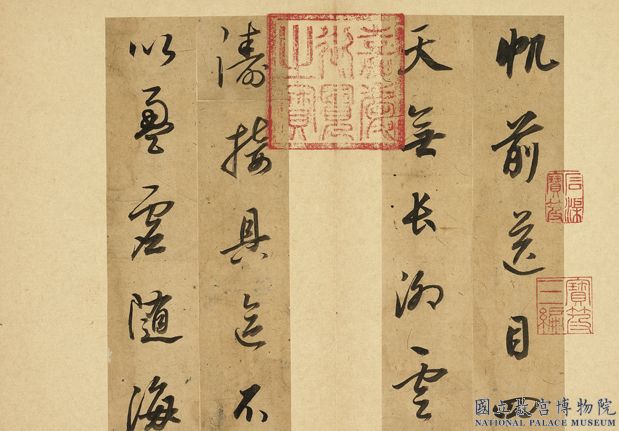 帆前送目
天無長洲雲
濤接具區不
以盈虛隨海
嘉慶御覽之寶
石渠寶笈
寶笈三編
國立故宮博物院
NATIONAL PALACE MUSEUM